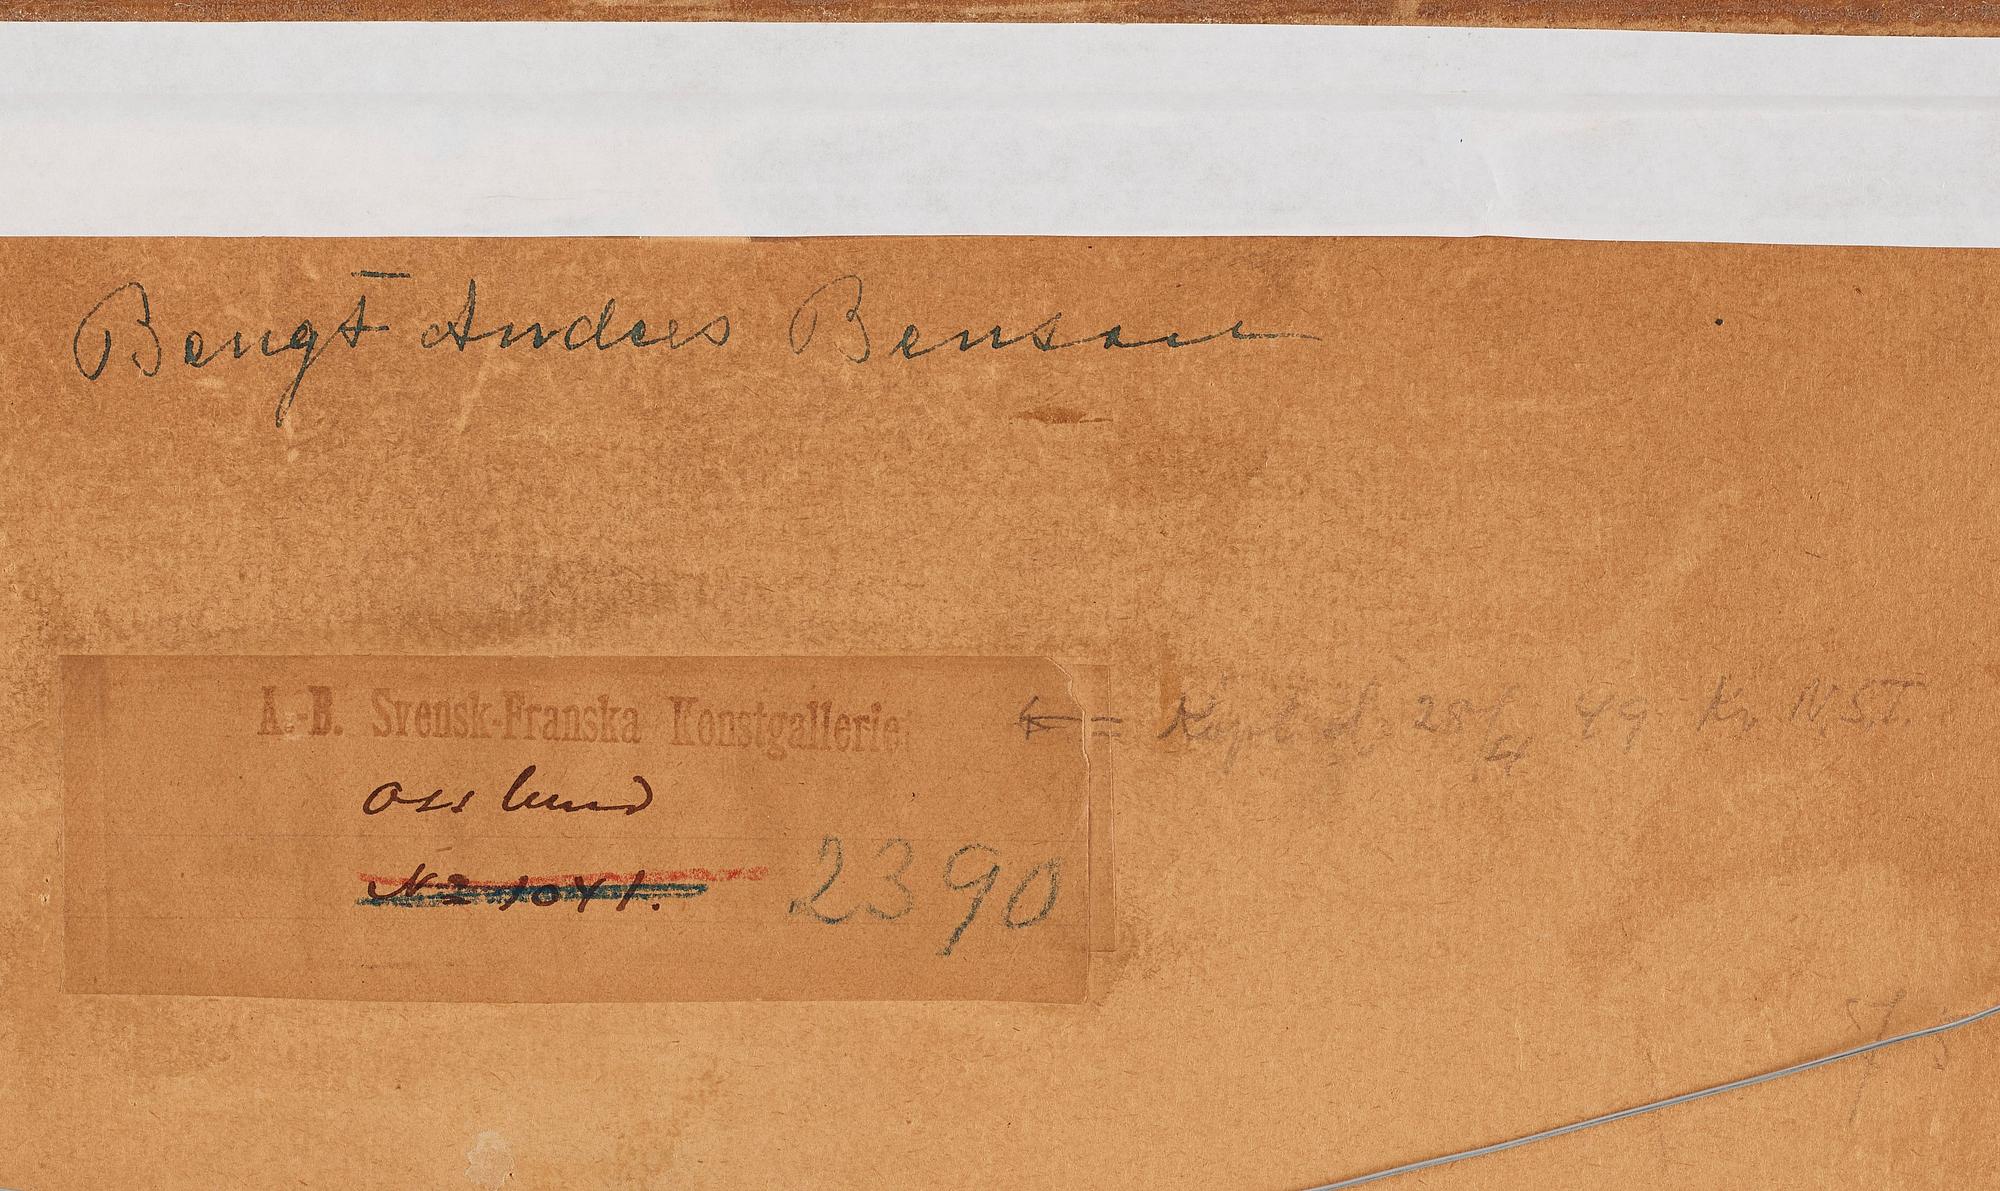 Bengt Andrees Benson
A.-B. Svensk-Franska Konstgalleriet
Osslund
No 1041.
2390
49 Kr N.S.T.